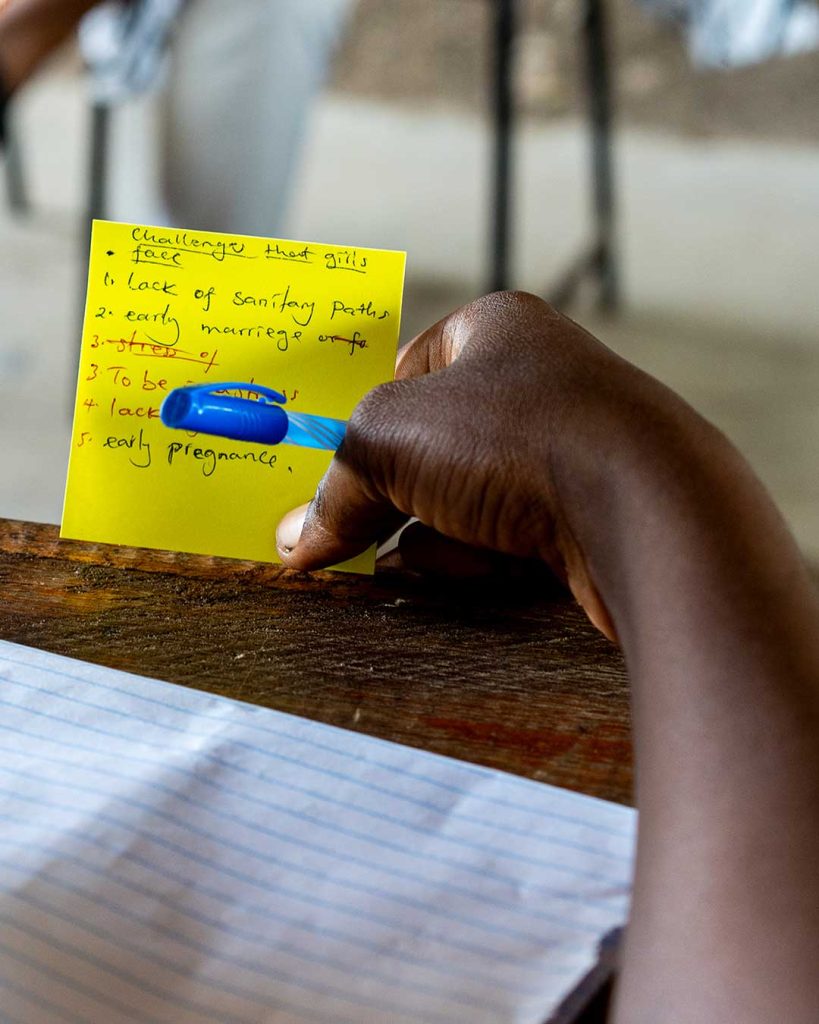 Challenge that girls
• face
1. Lack of sanitary paths
2. early marriege or fo
3. stres of
3. To be
4. lack
5. early pregnance.